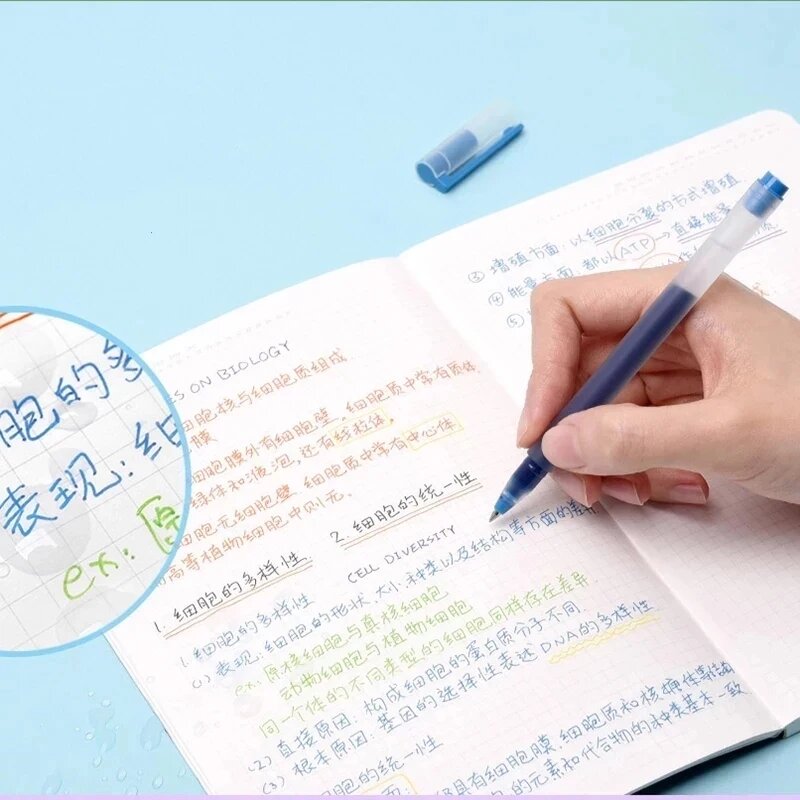 ES ON BIOLOGY
细胞核与细胞质组成.
膜
细胞膜外有细胞壁. 细胞质中常有质体.
绿体和液泡, 还有线粒体.
细胞无细胞壁. 细胞质中常有中心体
高等植物细胞中则无.
2. 细胞的统一性
CELL DIVERSITY
1. 细胞的多样性
1. 细胞的多样性
(1) 表现: 细胞的形状、大小、种类以及结构等方面的差异
ex: 原核细胞与真核细胞.
动物细胞与植物细胞
同一个体的不同类型的细胞同样存在差异.
(2) 直接原因: 构成细胞的蛋白质分子不同.
(3) 根本原因: 基因的选择性表达 DNA的多样性
细胞的统一性
具有细胞膜、细胞质和核
的元素和化合物的种类基本一致
③ 增殖方面: 以细胞分裂的方式增殖
④ 能量方面 都以ATP→直接能量
⑤
胞的多
表现: 细
ex: 原